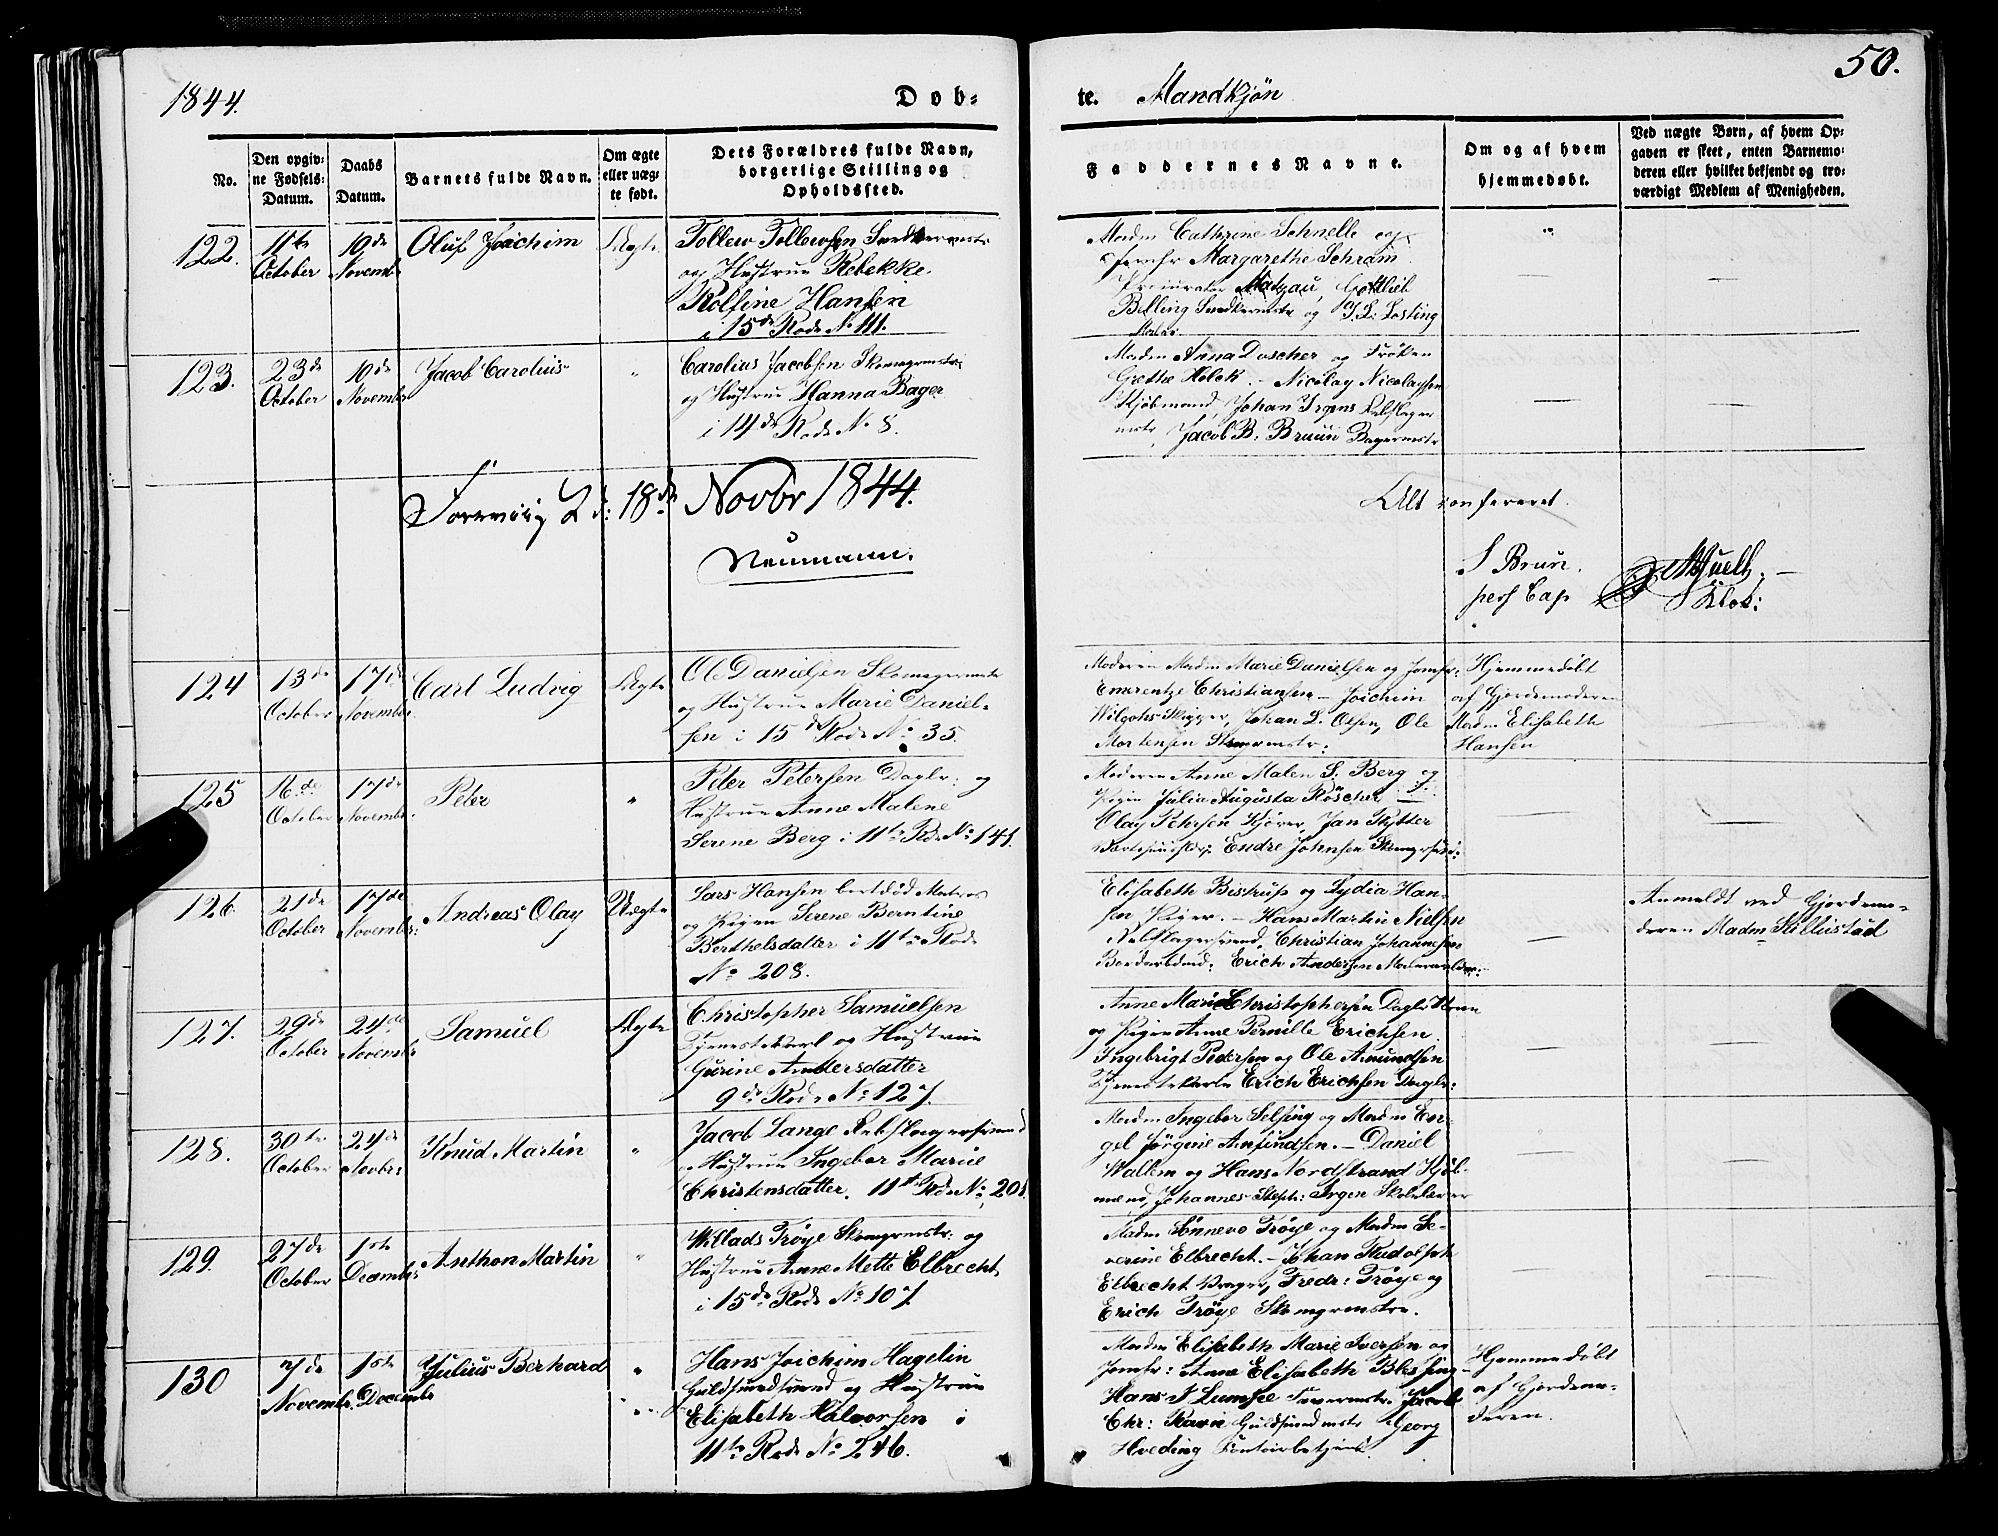 1844.
Døb-
te. Mandkjøn
50.
No.
Den opgiv-
ne Fødsels-
Datum.
Daabs
Datum.
Barnets fulde Navn.
Om ægte
eller uæg-
te født.
Dets Forældres fulde Navn,
borgerlige Stilling og
Opholdssted.
Faddernes Navne.
Om og af hvem
hjemmedøbt.
Ved uægte Børn, af hvem Op-
gaven er skeet, enten Barnemo-
deren eller hvilket bekjendt og tro-
værdigt Medlem af Menigheden.
122.
11te
October
10de
Novembr
Oluf Joachim
Ægte
Tollew Tollewsen Snedkermstr
og Hustrue Rebekke
Rolfine Hansen
i 15de Rode No 111.
Madm Cathrine Schnelle og
Jomfr Margarethe Schram
Procurator Gottlieb
Billing Snedkermstr og J. L. Losting
Maler
123.
23de
October
10de
November
Jacob Carolius
"
Carolius Jacobsen Skomagrmstr
og Hustrue Hanna Bager
i 14de Rode No 8.
Madm Anna Doscher og Frøken
Grethe Holck. - Nicolay Nicolaysen
Kjøbmand, Johan Irgens Rebslager
mstr, Jacob B. Bruun Bagermstr
d: 18de Novbr 1844.
Neumann.
Alt confereret.
J Bruun.
pers Cap
Klok:
124
13de
October
17de
November
Carl Ludvig
Ægte
Ole Danielsen Skomagermstr
og Hustrue Marie Daniel-
sen i 15de Rode No 35.
Moderen Madm Marie Danielsen og Jomfr:
Emrentze Christiansen - Joichim
Skipper, Johan L. Olsen, Ole
Mortensen Skomgrmstr:
Hjemmedøbt
af Gjordemoderen
Madm Elisabeth
Hansen
125
16de
October
17de
Novembr.
Peter
"
Peter Petersen Daglr: og
Hustrue Anne Malene
Serene Berg i 11te Rode No 141.
Moderen Anne Malen S: Berg og
Pigen Julia Augusta Röscher -
Olay Petersen Kjører, Jan Rytter
Endre Johnsen
126.
21de
October
17de
Novembr:
Andreas Olay
Uægte
Lars Hansen bortdød Matros
og Pigen Serene Berntine
Berthelsdatter i 11te Rode
No 208.
Elisabeth Bistrup og Lydia Han-
sen Piger. - Hans Martin Nielsen
Rebslagersvend, Christian Johannesen
Erich Andersen
Anmeldt ved Gjordemo-
deren Madm Stillestad
127.
29de
October
24de
Novembr
Samuel
Ægte
Christopher Samuelsen
Tjenestekarl og Hustrue
Gurine Andersdatter
9de Rode No 127.
Anne Marie Christophersen Daglr Kone
og Pigen Anne Pernille Erichsen
Ingebrigt Pedersen og Ole Amundsen
Tjenestekarle Erich Erichsen Daglr:
128.
30te
October
24de
Novbr:
Knud Martin
"
Jacob Lange Rebslagersvend
og Hustrue Ingebor Marie
Christensdatter. 11te Rode No 208
Madm Ingebor Selsing og Madm En-
gel Jørgine Amundsen. - Daniel
Wallem og Hans Nordstrand Kjøb-
mænd, Johannes Steph: Irgen Skolelærer
129.
27de
October
1ste
Decembr:
Anthon Martin
"
Willads Trøye Skomgrmstr: og
Hustrue Anne Mette Elbrecht
i 15de Rode No 107
Madm Sønneva Trøye og Madm Se-
verine Elbrecht. - Johan Rudolph
Elbrecht Vrager, Fredr: Trøye og
Erich Trøye Skomgrmstre.
130
7de
Novembr.
1ste
Decembr
Julius Berhard
"
Hans Joichim Hagelin
Guldsmedsvend og Hustrue
Elisabeth Halvorsen i
11te Rode No 246.
Madm Elisabeth Marie Iversen og
Jomfr: Anne Elisabeth Blessing-
Hans J Lumse Jacob
Chr: Ravn Guldsmedmstr Georg
Hveding Contoirbetjent
Hjemmedøbt
af Gjordemo-
deren.